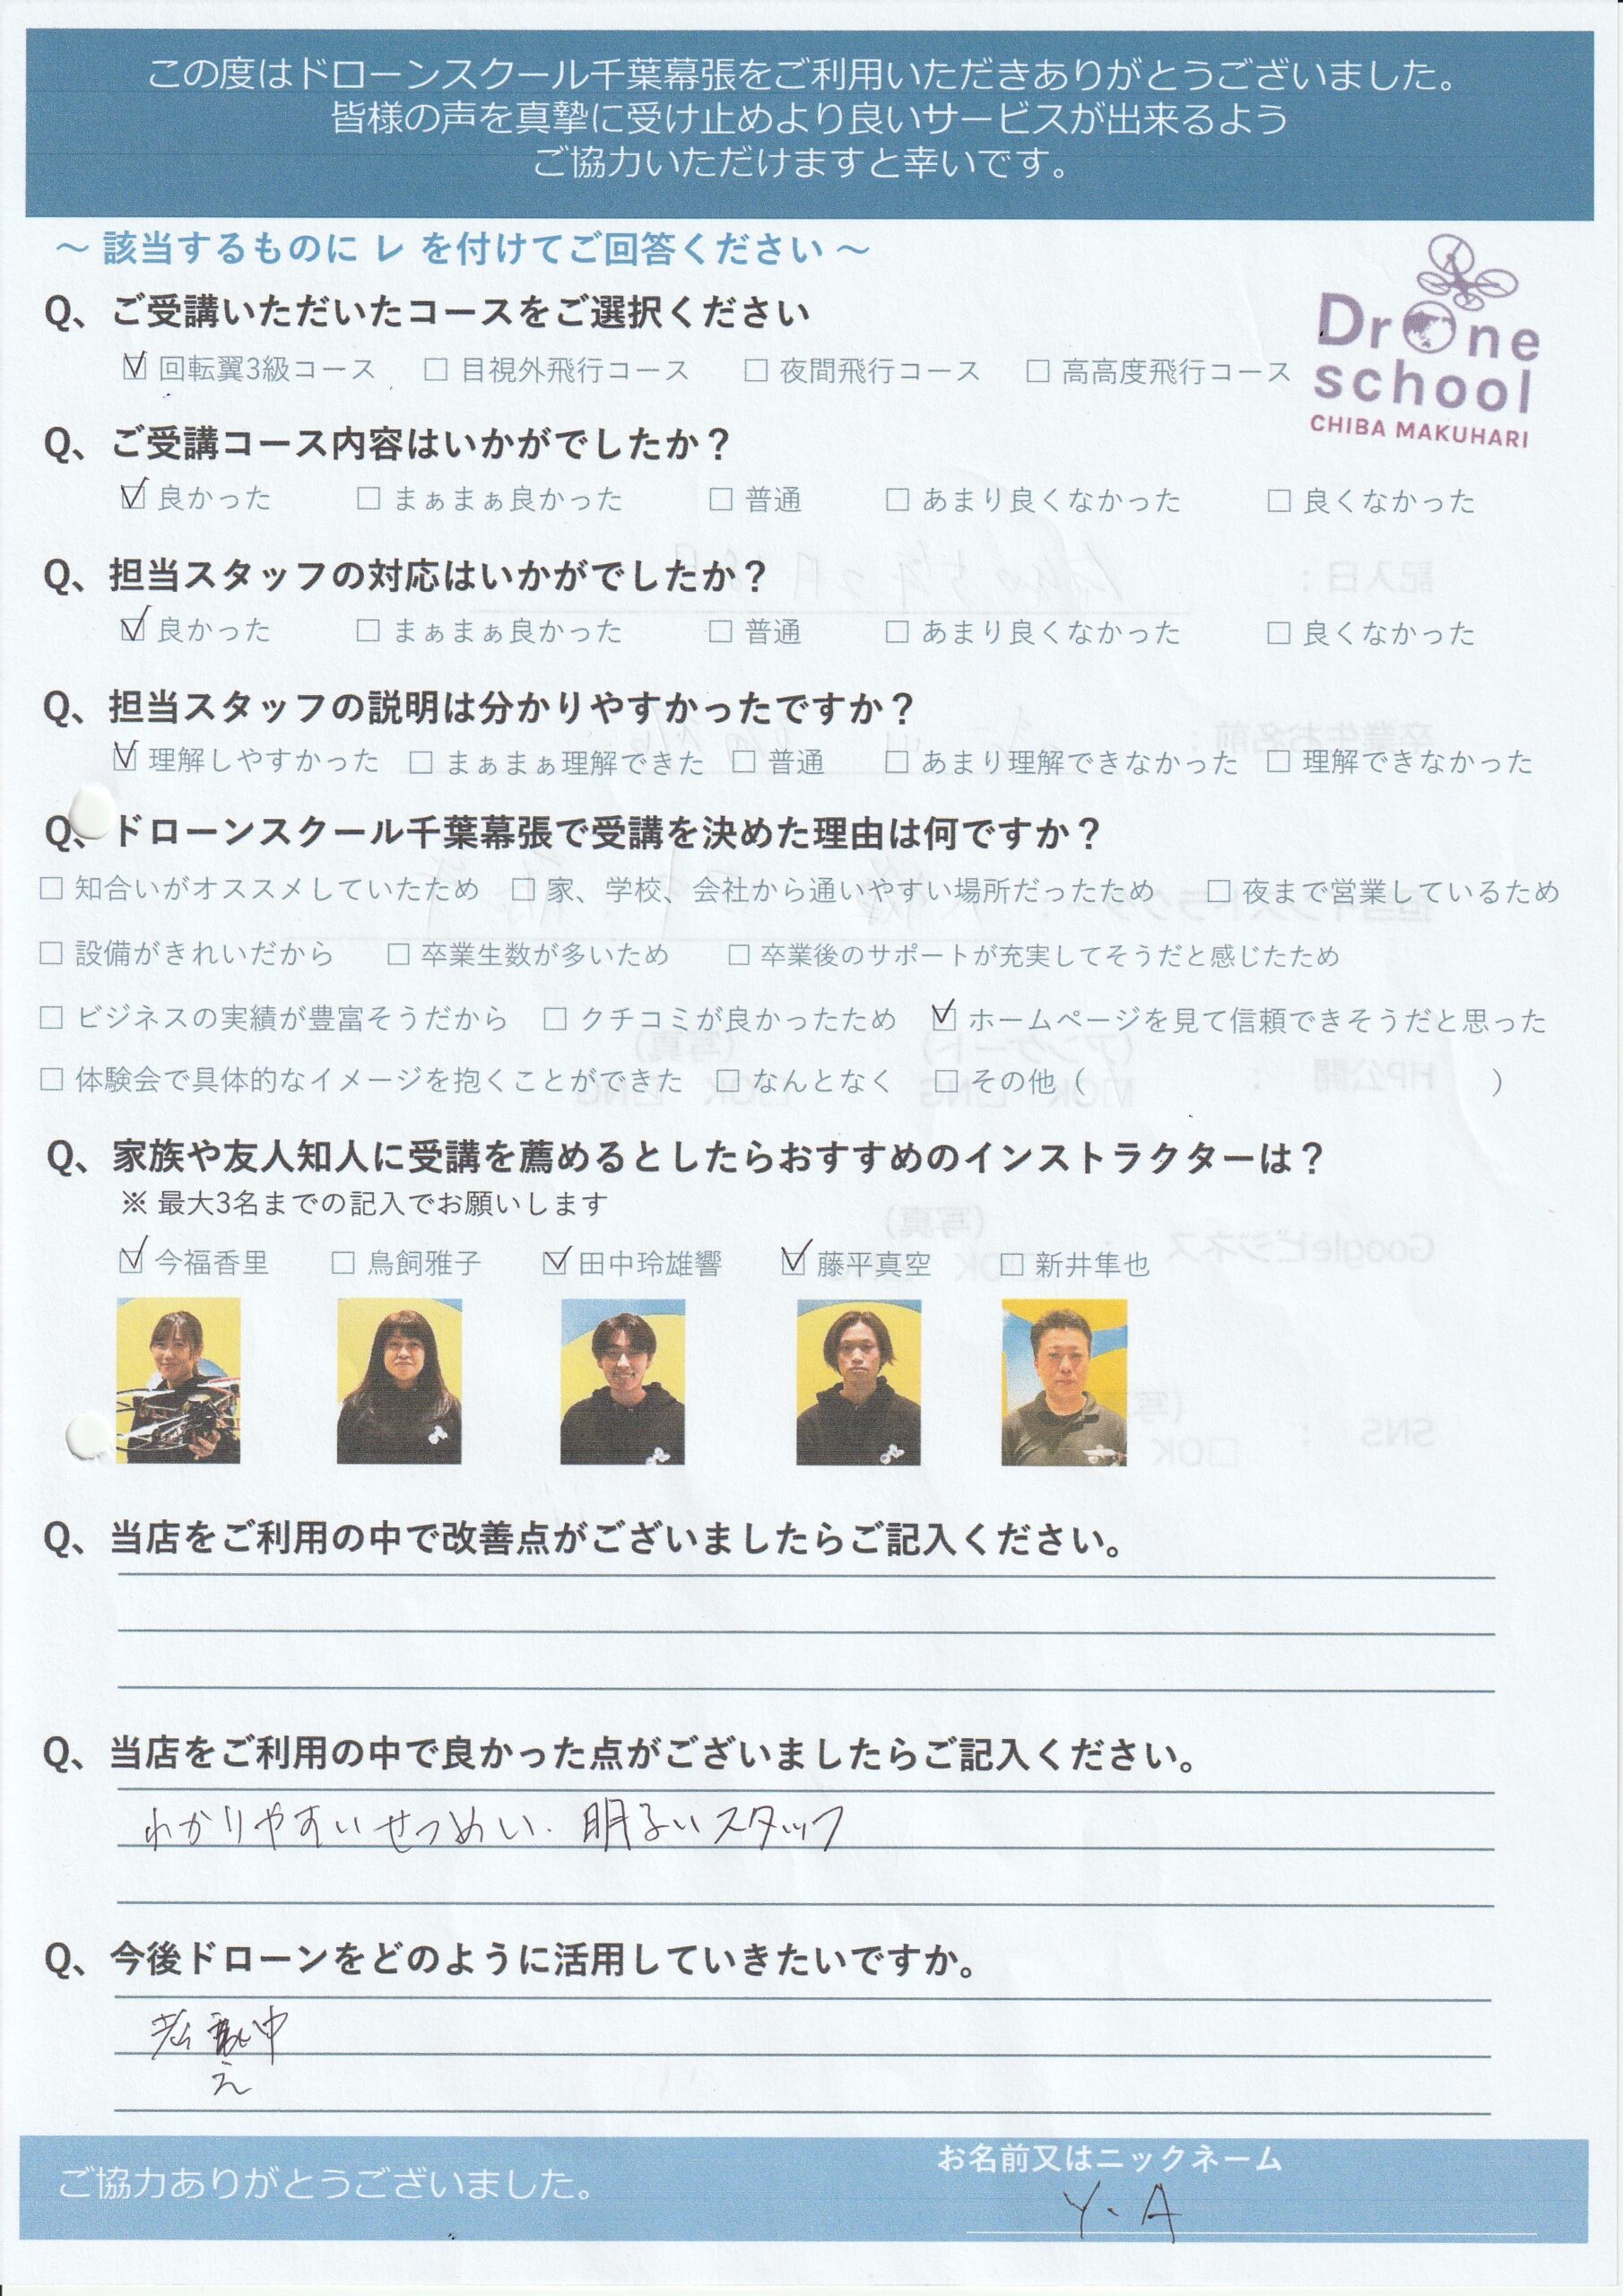 この度はドローンスクール千葉幕張をご利用いただきありがとうございました。
皆様の声を真摯に受け止めより良いサービスが出来るよう
ご協力いただけますと幸いです。
～ 該当するものに レ を付けてご回答ください ～
Drone
school
CHIBA MAKUHARI
Q、ご受講いただいたコースをご選択ください
☑ 回転翼3級コース □ 目視外飛行コース □ 夜間飛行コース □ 高高度飛行コース
Q、ご受講コース内容はいかがでしたか？
☑ 良かった □ まぁまぁ良かった □ 普通 □ あまり良くなかった □ 良くなかった
Q、担当スタッフの対応はいかがでしたか？
☑ 良かった □ まぁまぁ良かった □ 普通 □ あまり良くなかった □ 良くなかった
Q、担当スタッフの説明は分かりやすかったですか？
☑ 理解しやすかった □ まぁまぁ理解できた □ 普通 □ あまり理解できなかった □ 理解できなかった
Q、ドローンスクール千葉幕張で受講を決めた理由は何ですか？
□ 知合いがオススメしていたため □ 家、学校、会社から通いやすい場所だったため □ 夜まで営業しているため
□ 設備がきれいだから □ 卒業生数が多いため □ 卒業後のサポートが充実してそうだと感じたため
□ ビジネスの実績が豊富そうだから □ クチコミが良かったため ☑ ホームページを見て信頼できそうだと思った
□ 体験会で具体的なイメージを抱くことができた □ なんとなく □ その他（ ）
Q、家族や友人知人に受講を薦めるとしたらおすすめのインストラクターは？
※ 最大3名までの記入でお願いします
☑ 今福香里 □ 鳥飼雅子 ☑ 田中玲雄響 ☑ 藤平真空 □ 新井隼也
Q、当店をご利用の中で改善点がございましたらご記入ください。
Q、当店をご利用の中で良かった点がございましたらご記入ください。
わかりやすいせつめい. 明るいスタッフ
Q、今後ドローンをどのように活用していきたいですか。
考 中
え
ご協力ありがとうございました。
お名前又はニックネーム
Y.A